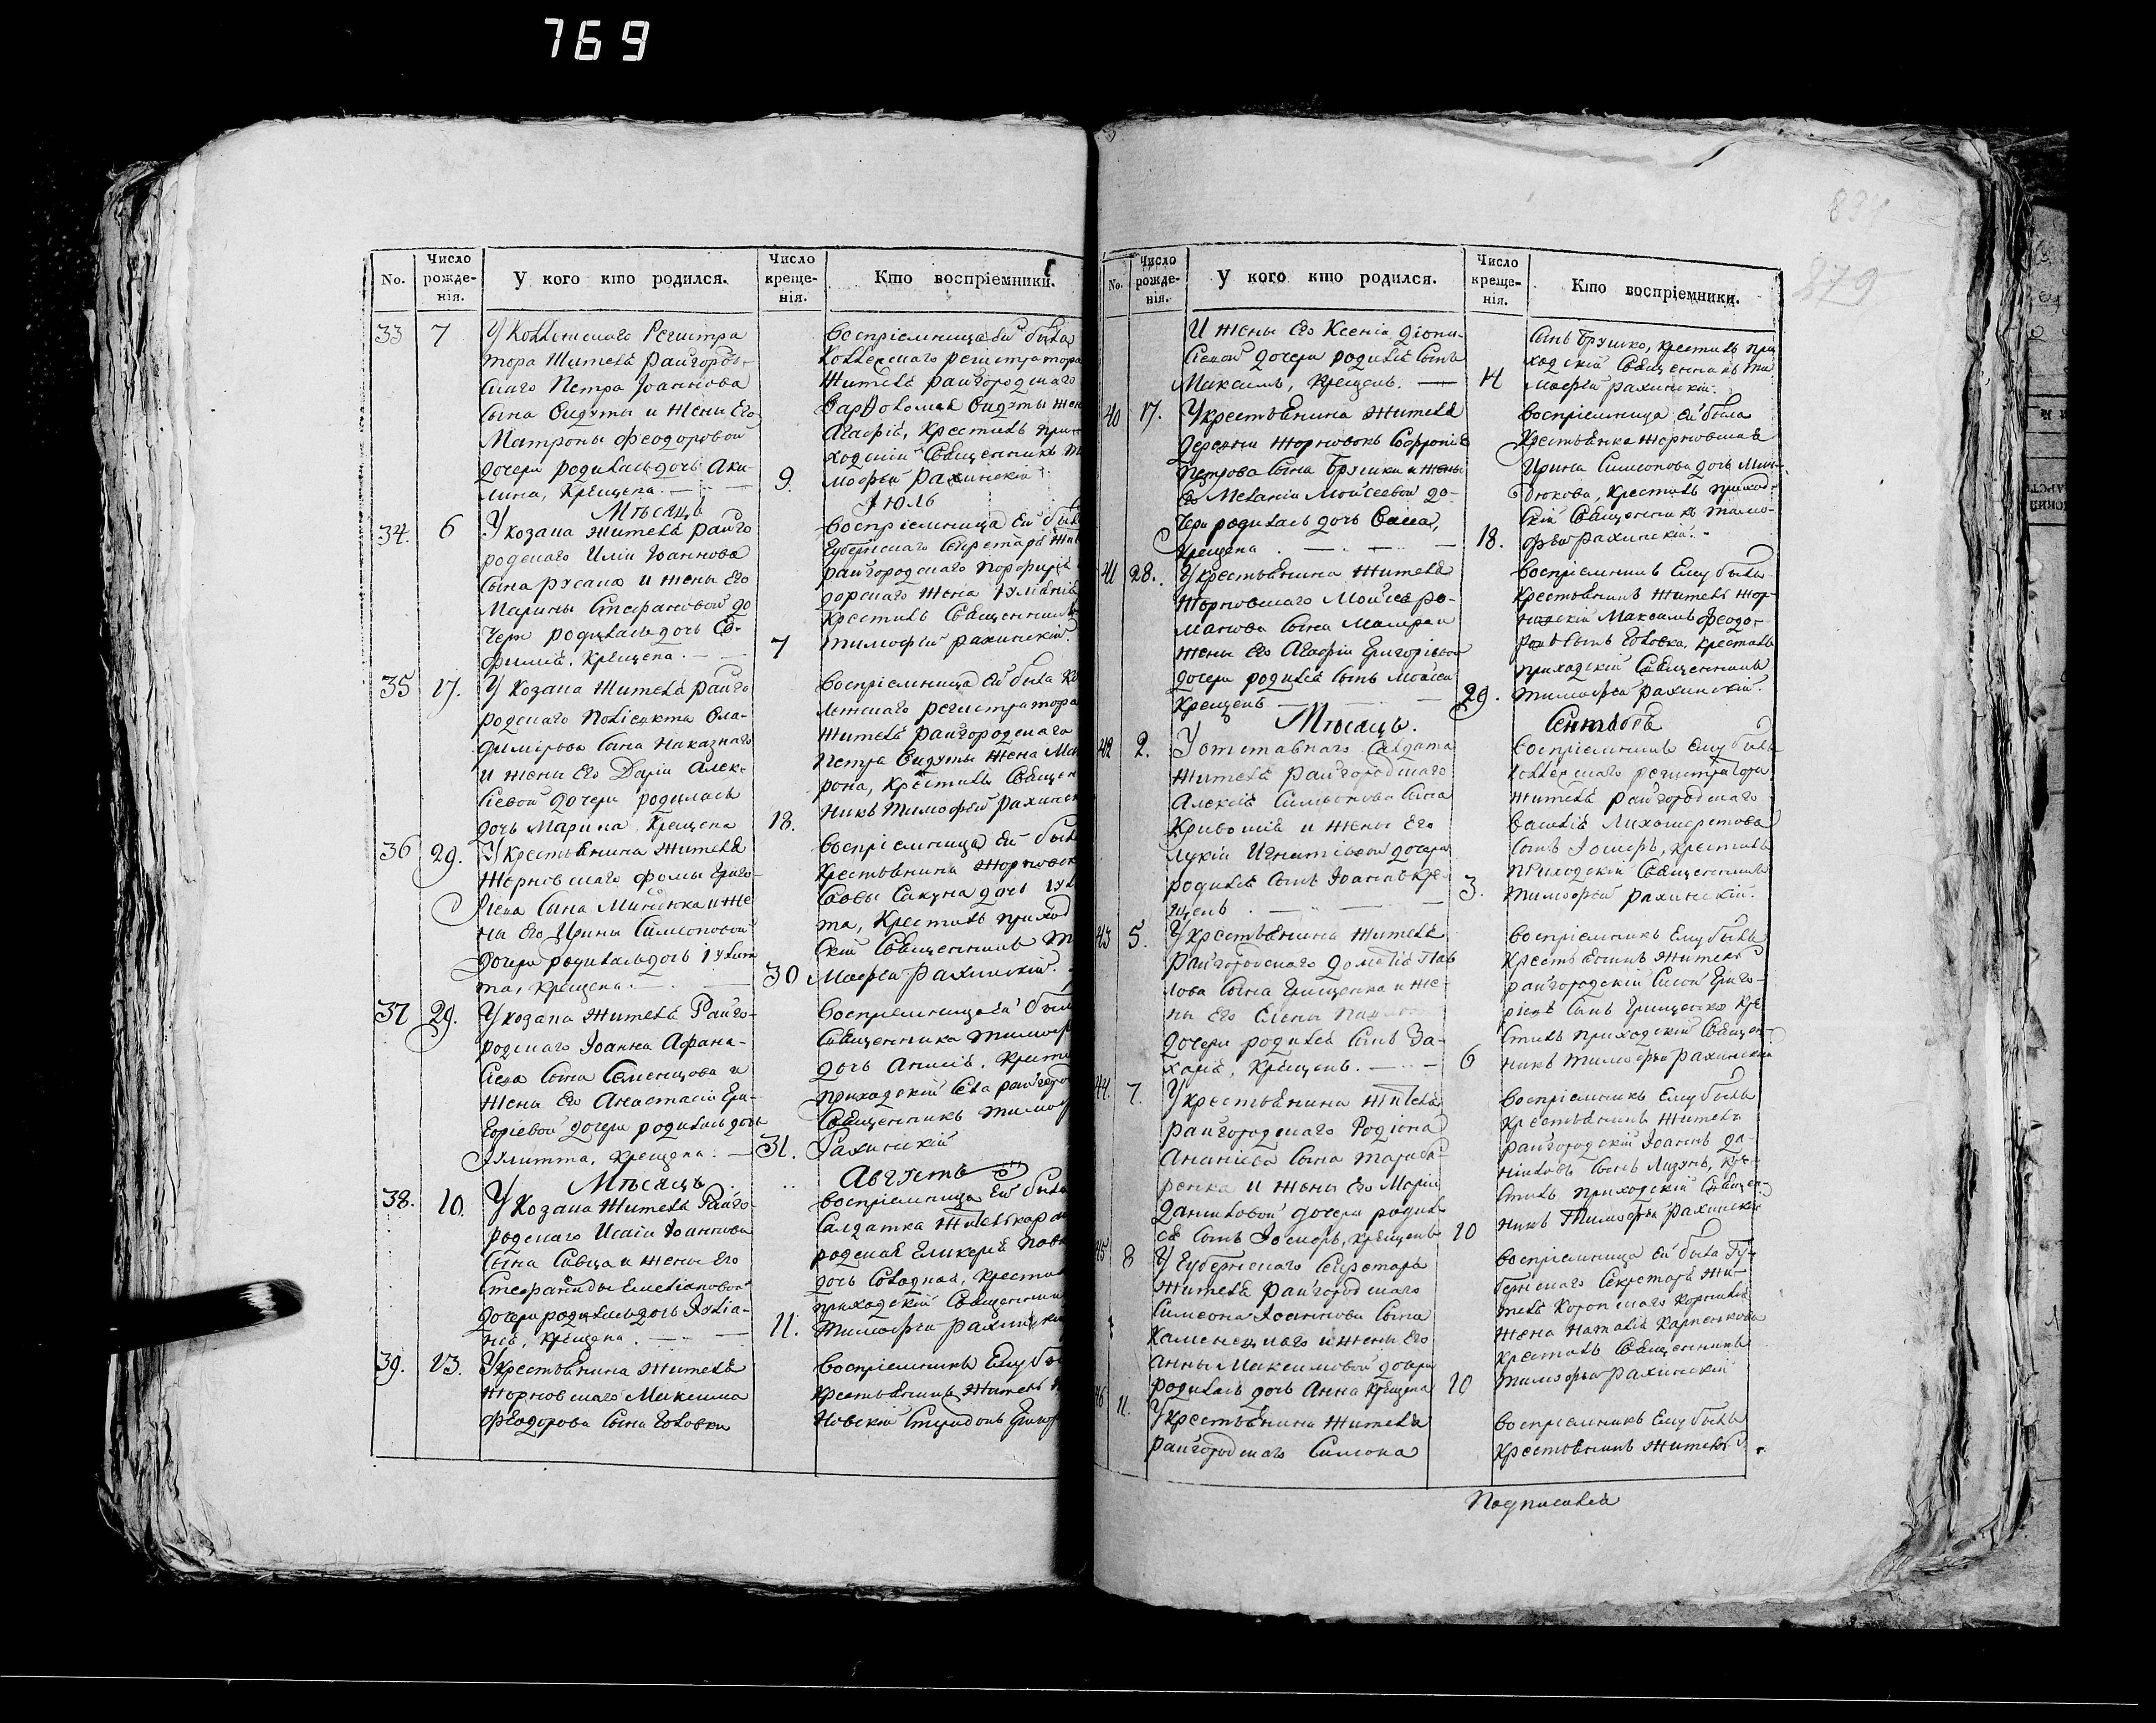 769
No.
Число рожде-нія.
У кого кто родился.
Число креще-нія.
Кто воспріемники.
33 7
У Коллежскаго Регистра
тора Жителя Райгород-
скаго Петра Іоаннова
сына Видуты и жены Его
Матроны Феодоровой
дочери родилась дочь Аки-
лина, Крещена.
9.
воспріемницей была
Коллежскаго регистратора
Жителя райгородскаго
Варфоломея Видуты жен
Агафія, Крестилъ при-
ходскій Священникъ Ти
мофей Рахинскій
Мѣсяцъ
Іюль
34. 6
У козака жителя райго
родскаго Иліи Іоаннова
сына русана и жены Его
Марины Стефановой до
чери родилась дочь Ев-
фимія, Крещена.
7
воспріемница Ей был
Губернскаго Секретаря Жит
райгородскаго Порфирія
жена Іуліанія
Крестилъ Священникъ
Тимофей рахинскій.
35 17.
У козака жителя райго
родскаго Поліевкта Вла-
димірова сына Наказнаго
и жены Его Даріи Алек-
сіевой дочери родилась
дочь Марина, Крещена
18.
воспріемница Ей была Ко
лежскаго регистратора
жителя райгородскаго
Петра Видуты жена Мат
рона, Крестилъ Священ
никъ Тимофей рахинск
36 29.
У крестьянина жителя
Жорновскаго Фомы Григо-
рева сына Миндюка и же
ны Его Ирины Симеоновой
дочери родилась дочь Іулит
та, Крещена.
30
воспріемница Ей был
Крестьянина Жорновск
Саввы Сакуна дочь Іул
та, Крестилъ приход
скій Священникъ Ти
мофей рахинскій.
37 29.
У козака жителя Райго-
родскаго Іоанна Афана-
сіева сына Семенцова и
жены Его Анастасіи Гри-
горіевой дочери родилась дочь
Іулитта, Крещена.
31.
воспріемницей был
Священника Тимоф
дочь Анисія, Крести
приходскій села райгород
Священникъ Тимоф
Рахинскій
Мѣсяцъ
Августъ
38. 10.
У Козака Жителя Райго-
родскаго Исаіи Іоаннова
сына Савца и жены Его
Стефаниды Емеліановой
дочери родилась дочь Іуліа-
нія, Крещена.
11.
воспріемница Ей была
Салдатка
родская Гликерія Пав
дочь Солодкая, Крести
приходскій Священник
Тимофей Рахинскій
39. 13.
У крестьянина жителя
Жорновскаго Максима
Феодорова сына Головки
воспріемникъ Ему бы
крестьянинъ Житель
новскій Спиридонъ Григор
834
879
No.
Число рожде-нія.
У кого кто родился.
Число креще-нія.
Кто воспріемники.
И жены Его Ксеніи Діони-
сіевой дочери родился сынъ
Максимъ, Крещенъ.
14
сынъ Брушко, крестилъ при
ходскій Священникъ Ти
мофей рахинскій.
40 17.
У крестьянина жителя
деревни Жорновокъ Софронія
Петрова сына Брушки и жены
Его Меланіи Мойсеевой до-
чери родилась дочь Васса,
Крещена
18.
воспріемница ей была
Крестьянка Жорновская
Ирина Симеонова дочь Мин-
дюкова, Крестилъ приход-
скій Священникъ Тимо-
фей рахинскій.
41 28.
У крестьянина Жителя
Жорновскаго Мойсея Ро-
манова сына и
жены Его Агафіи Григоріевой
дочери родился сынъ Мойсей
Крещенъ
29.
воспріемникъ Ему былъ
крестьянинъ житель жор-
новскій Максимъ Феодо-
ровъ сынъ Головка, крестилъ
приходскій Священникъ
Тимофей рахинскій.
Мѣсяцъ.
Сентябрь
42 2.
У отставнаго Салдата
жителя райгородскаго
Алексія Симеонова сына
Кривошія и жены Его
Лукіи Игнатіевой дочери
родился сынъ Іоаннъ кре-
щенъ
3.
воспріемникъ Ему былъ
Коллежскаго регистратора
жителя райгородскаго
Василія Лихошерстова
сынъ Іосифъ, крестилъ
приходскій Священникъ
Тимофей рахинскій.
43 5.
У крестьянина жителя
райгородскаго Дометія Пав
лова сына Грищенка и же-
ны Его Елены
дочери родился сынъ За-
харія, Крещенъ.
6
воспріемникъ Ему былъ
крестьянинъ житель
райгородскій Сисой Григо-
ріевъ сынъ Грищенко кре
стилъ приходскій Священ-
никъ Тимофей рахинскій
44. 7.
У крестьянина жителя
райгородскаго Родіона
Ананіева сына
и жены Его Маріи
Даниловой дочери родил-
ся сынъ Іосифъ, крещенъ
10
воспріемникъ Ему былъ
крестьянинъ житель
райгородскій Іоаннъ Да-
ніиловъ сынъ Лизунъ, кре-
стилъ приходскій Священ-
никъ Тимофей рахинскій
45 8
У Губернскаго Секретаря
жителя райгородскаго
Симеона Іоаннова сына
Каменецкаго и жены Его
Анны Максимовой дочери
родилась дочь Анна Крещена
10
воспріемница Ей была Гу-
бернскаго Секретаря жи-
теля Коропскаго Корнилія
жена Наталія Карпенкова
крестилъ Священникъ
Тимофей рахинскій
46 11.
У крестьянина жителя
райгородскаго Симеона
воспріемникъ Ему былъ
Крестьянинъ житель
Подписался